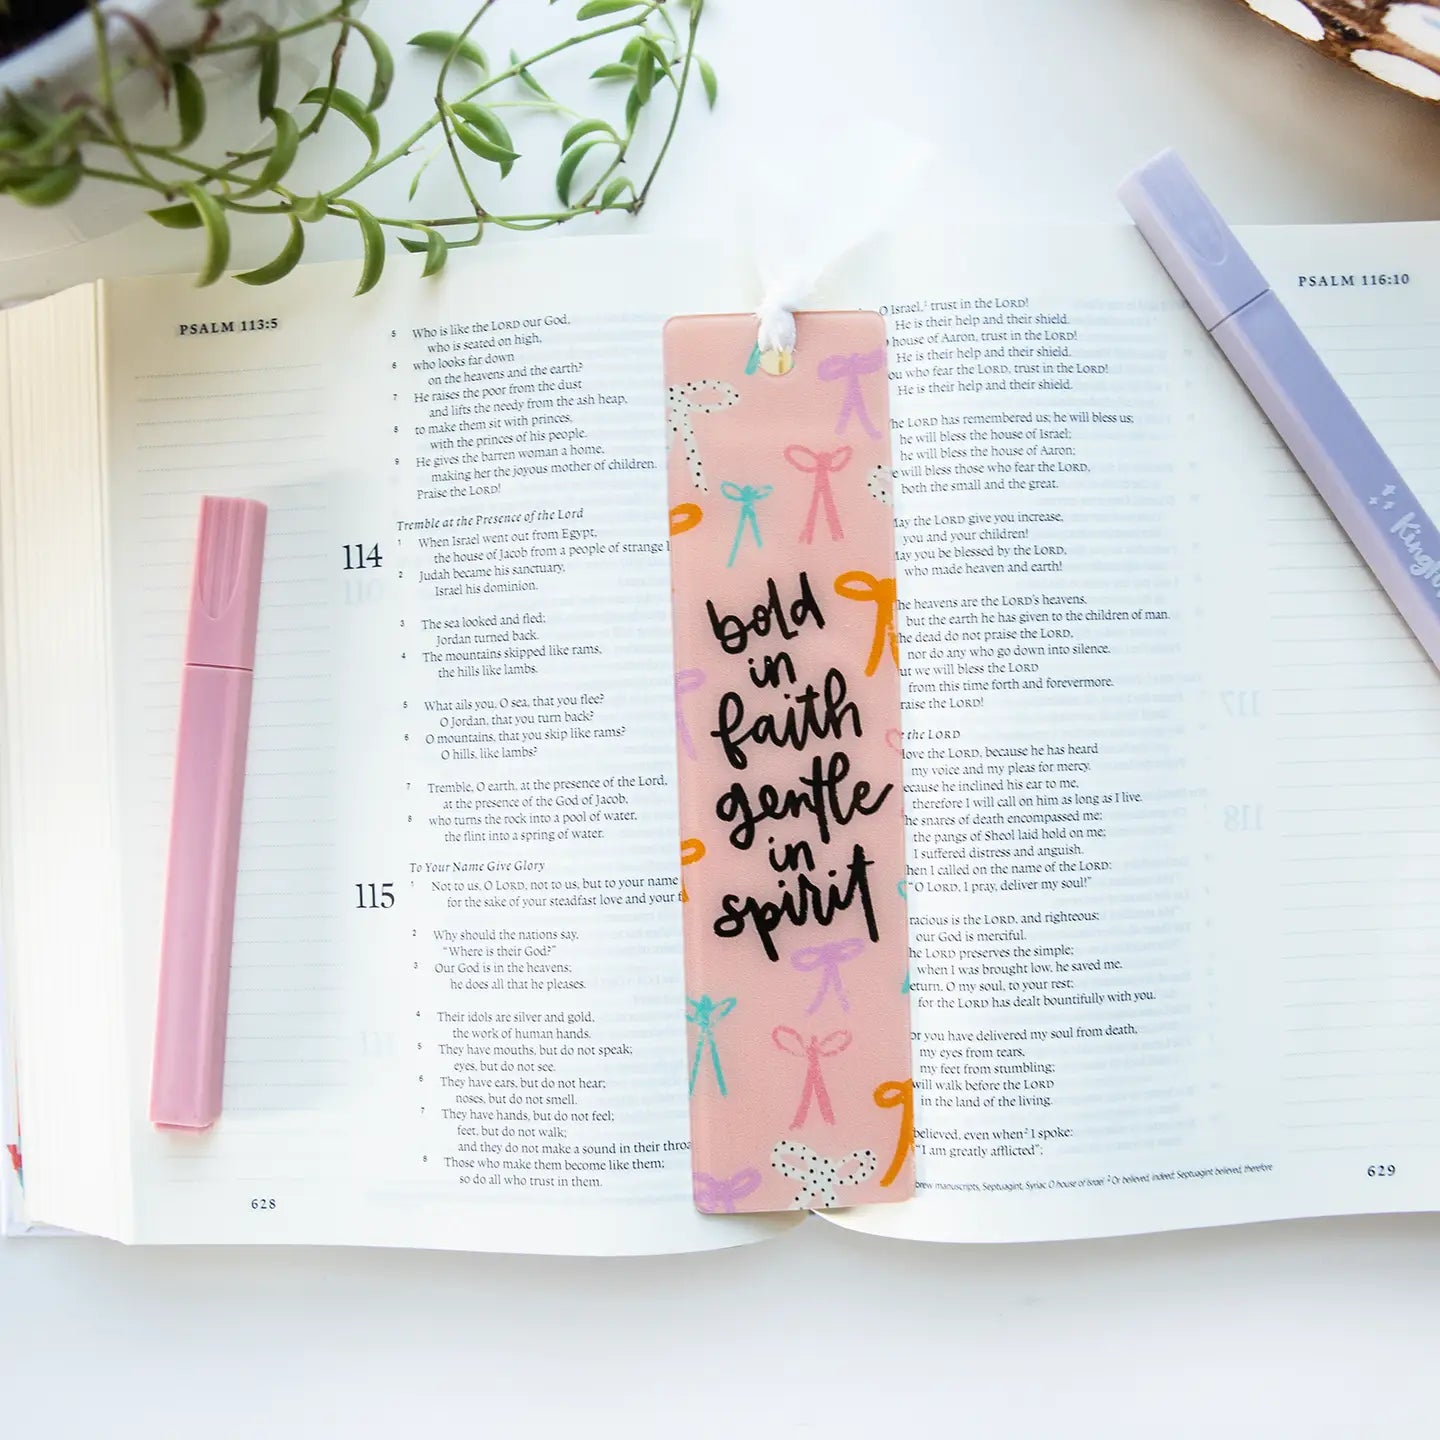 PSALM 113:5
5 Who is like the LORD our God,
who is seated on high,
6 who looks far down
on the heavens and the earth?
7 He raises the poor from the dust
and lifts the needy from the ash heap,
8 to make them sit with princes,
with the princes of his people.
9 He gives the barren woman a home,
making her the joyous mother of children.
Praise the LORD!
Tremble at the Presence of the Lord
114
1 When Israel went out from Egypt,
the house of Jacob from a people of strange
2 Judah became his sanctuary,
Israel his dominion.
3 The sea looked and fled;
Jordan turned back.
4 The mountains skipped like rams,
the hills like lambs.
5 What ails you, O sea, that you flee?
O Jordan, that you turn back?
6 O mountains, that you skip like rams?
O hills, like lambs?
7 Tremble, O earth, at the presence of the Lord,
at the presence of the God of Jacob,
8 who turns the rock into a pool of water,
the flint into a spring of water.
To Your Name Give Glory
115
1 Not to us, O LORD, not to us, but to your name
for the sake of your steadfast love and your
2 Why should the nations say,
"Where is their God?"
3 Our God is in the heavens;
he does all that he pleases.
4 Their idols are silver and gold,
the work of human hands.
5 They have mouths, but do not speak;
eyes, but do not see.
6 They have ears, but do not hear;
noses, but do not smell.
7 They have hands, but do not feel;
feet, but do not walk;
and they do not make a sound in their
8 Those who make them become like them;
so do all who trust in them.
628
bold
in
faith
gentle
in
spirit
PSALM 116:10
O Israel,¹ trust in the LORD!
He is their help and their shield.
house of Aaron, trust in the LORD!
He is their help and their shield.
who fear the LORD, trust in the LORD!
He is their help and their shield.
LORD has remembered us; he will bless us;
he will bless the house of Israel;
he will bless the house of Aaron;
will bless those who fear the LORD,
both the small and the great.
the LORD give you increase,
you and your children!
you be blessed by the LORD,
who made heaven and earth!
heavens are the LORD's heavens,
but the earth he has given to the children of man.
dead do not praise the LORD,
nor do any who go down into silence.
we will bless the LORD
from this time forth and forevermore.
the LORD!
the LORD
the LORD, because he has heard
my voice and my pleas for mercy.
he inclined his ear to me,
therefore I will call on him as long as I live.
snares of death encompassed me;
the pangs of Sheol laid hold on me;
I suffered distress and anguish.
I called on the name of the LORD:
"O LORD, I pray, deliver my soul!"
is the LORD, and righteous;
our God is merciful.
LORD preserves the simple;
when I was brought low, he saved me.
O my soul, to your rest;
for the LORD has dealt bountifully with you.
you have delivered my soul from death,
my eyes from tears,
my feet from stumbling;
will walk before the LORD
in the land of the living.
believed, even when² I spoke:
"I am greatly afflicted";
manuscripts, Septuagint, Syriac O house of Israel ² Or believed, indeed; Septuagint believed, therefore
629